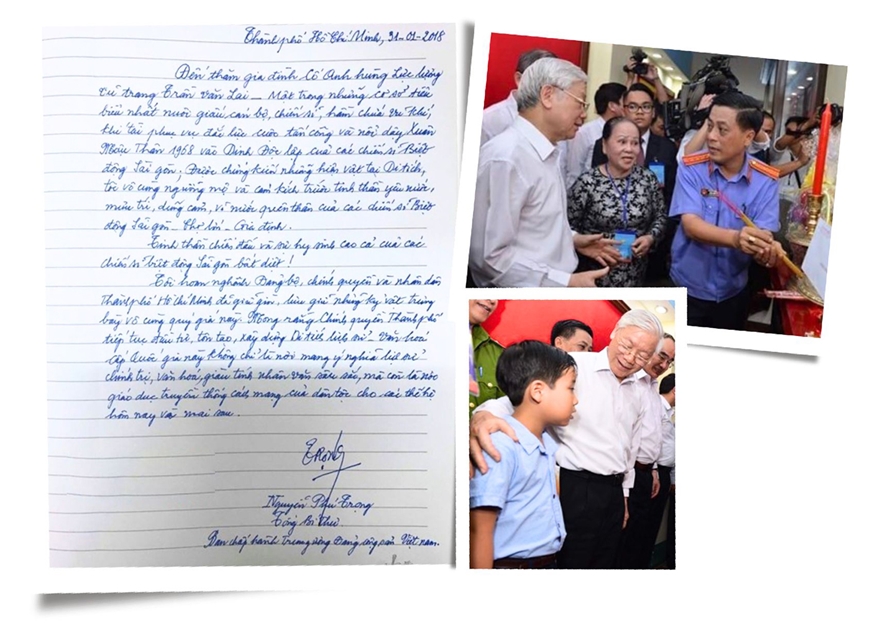 Thành phố Hồ Chí Minh, 31-01-2018
Đến thăm gia đình Cố Anh hùng Lực lượng
vũ trang Trần Văn Lai – Một trong những cơ sở tiêu
biểu nhất nuôi giấu cán bộ, chiến sĩ, hầm chứa vũ khí,
khí tài phục vụ đắc lực cuộc tấn công và nổi dậy Xuân
Mậu Thân 1968 vào Dinh Độc lập của các chiến sĩ Biệt
động Sài gòn; Được chứng kiến những hiện vật tại Di tích,
tôi vô cùng ngưỡng mộ và cảm kích trước tinh thần yêu nước,
mưu trí, dũng cảm, vì nước quên thân của các chiến sĩ Biệt
động Sài gòn – Chợ lớn – Gia định.
Tinh thần chiến đấu và sự hy sinh cao cả của các
chiến sĩ biệt động Sài gòn bất diệt!
Tôi hoan nghênh Đảng bộ, chính quyền và nhân dân
Thành phố Hồ Chí Minh đã giữ gìn, lưu giữ những kỷ vật trưng
bày vô cùng quý giá này. Mong rằng Chính quyền Thành phố
tiếp tục đầu tư, tôn tạo, xây dựng Di tích lịch sử – Văn hoá
cấp Quốc gia này không chỉ là nơi mang ý nghĩa lịch sử
chính trị, văn hoá, giàu tính nhân văn sâu sắc, mà còn là nơi
giáo dục truyền thống cách mạng của dân tộc cho các thế hệ
hôm nay và mai sau.
Trọng
Nguyễn Phú Trọng
Tổng Bí Thư
Ban chấp hành Trung ương Đảng cộng sản Việt nam.